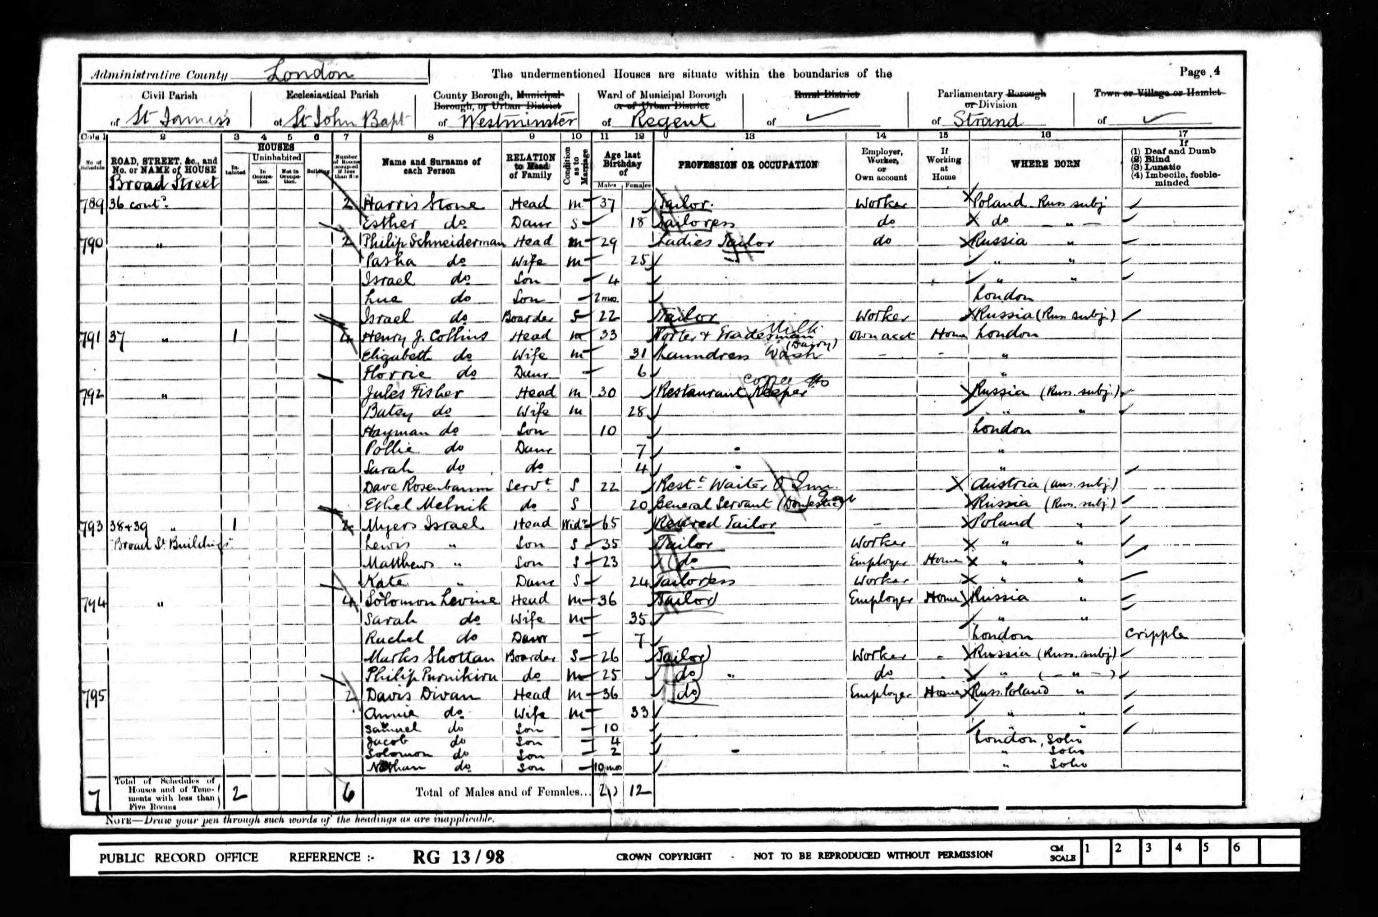 Administrative County London The undermentioned Houses are situate within the boundaries of the Page 4
Civil Parish Ecclesiastical Parish County Borough, Municipal Borough, or Urban District Ward of Municipal Borough or of Urban District Rural District Parliamentary Borough or Division Town or Village or Hamlet
of St James's of St John Bapt of Westminster of Regent of of Strand of
1 2 3 4 5 6 7 8 9 10 11 12 13 14 15 16 17
No. of Schedule ROAD, STREET, &c., and No. or NAME of HOUSE HOUSES Inhabited Uninhabited In Occupation. Not in Occupation. Building Name and Surname of each Person RELATION to Head of Family Condition as to Marriage Age last Birthday of Males Females PROFESSION OR OCCUPATION Employer, Worker, or Own account If Working at Home WHERE BORN If (1) Deaf and Dumb (2) Blind (3) Lunatic (4) Imbecile, feeble-minded
Broad Street
789 36 cont. 2 Harris Stone Head M 37 Tailor Worker Poland Russ. subj
Esther do Daur S 18 Tailoress do do "
790 " 2 Philip Schneiderman Head M 29 Ladies Tailor do Russia "
Pasha do Wife M 25 " "
Israel do Son 4 " "
do Son 2 mos. London
Israel do Boarder S 22 Tailor Worker Russia (Russ subj.)
791 37 " 1 4 Henry J. Collins Head M 33 Porter & Tradesman Milk (Dairy) Own acct Home London
Elizabeth do Wife M 31 Laundress Wash - - "
Florrie do Daur 6 "
792 " Jules Fisher Head M 30 Restaurant Keeper Russia (Russ. subj.)
Batey do Wife M 28 " "
Hayman do Son 10 London
Pollie do Daur 7 "
Sarah do do 4 "
Dave Rosenbaum Servt. S 22 Restt. Waiter Austria (aus. subj.)
Ethel Melnik do S 20 General Servant (Domestic) Russia (Russ. subj)
793 38+39 " 1 2 Myers Israel Head Widr 65 Retired Tailor - Poland "
"Broad St. Buildings" Lewis " Son S 35 Tailor Worker " "
Matthews " Son S 23 do Employer Home " "
Kate " Daur S 24 Tailoress Worker " "
794 " 4 Solomon Levine Head M 36 Tailor Employer Home Russia "
Sarah do Wife M 35 " "
Rachel do Daur 7 London Cripple
Marks Shottan Boarder S 26 Tailor Worker Russia (Russ. subj)
Philip do M 25 do " do " ( - " - )
795 2 Davis Divan Head M 36 do Employer Home Russ. Poland "
Annie do Wife M 33 " "
Samuel do Son 10 " "
Jacob do Son 4 London, Soho
Solomon do Son 2 " Soho
Nathan do Son 10 mos " Soho
7 Total of Schedules of Houses and of Tenements with less than Five Rooms 2 6 Total of Males and of Females... 12
NOTE—Draw your pen through such words of the headings as are inapplicable.
PUBLIC RECORD OFFICE REFERENCE :- RG 13/98 CROWN COPYRIGHT - NOT TO BE REPRODUCED WITHOUT PERMISSION CM SCALE 1 2 3 4 5 6